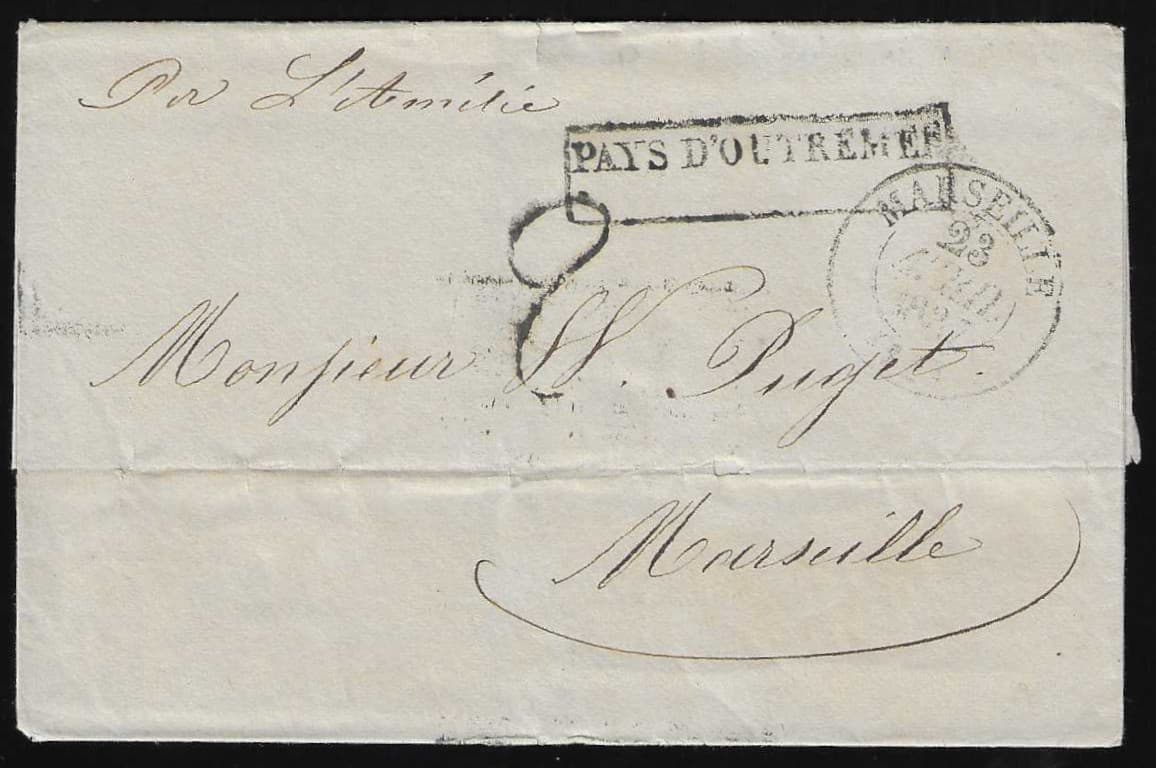 Par L'Amélie
PAYS D'OUTREMER
MARSEILLE
23
Monsieur W. Puget.
Marseille